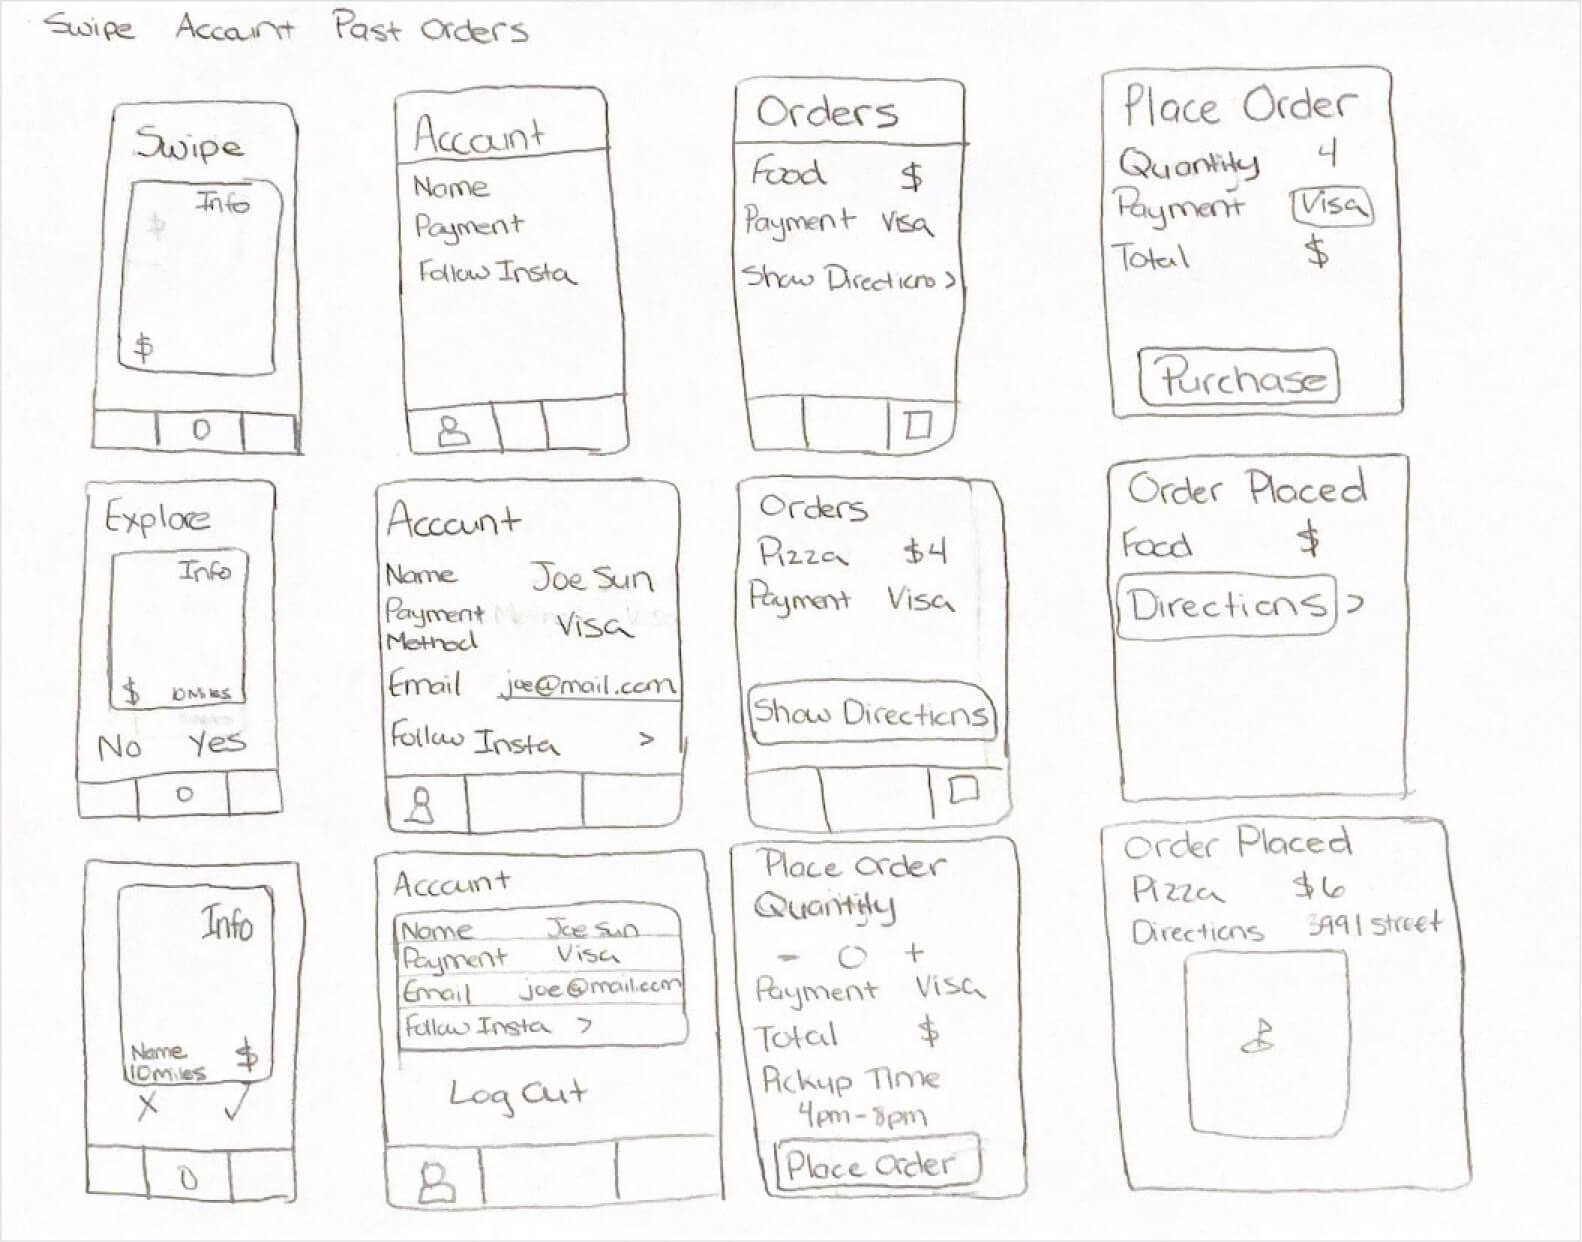 Swipe Account Past Orders
Swipe
Info
$
Account
Name
Payment
Follow Insta
Orders
Food $
Payment Visa
Show Directions >
Place Order
Quantity 4
Payment Visa
Total $
Purchase
Explore
Info
$ 10 Miles
No Yes
Account
Name Joe Sun
Payment
Method Visa
Email joe@mail.com
Follow Insta >
Orders
Pizza $4
Payment Visa
Show Directions
Order Placed
Food $
Directions >
Info
Name $
10 miles
Account
Name Joe Sun
Payment Visa
Email joe@mail.com
Follow Insta >
Log Out
Place Order
Quantity
- O +
Payment Visa
Total $
Pickup Time
4pm-8pm
Place Order
Order Placed
Pizza $6
Directions 3991 street